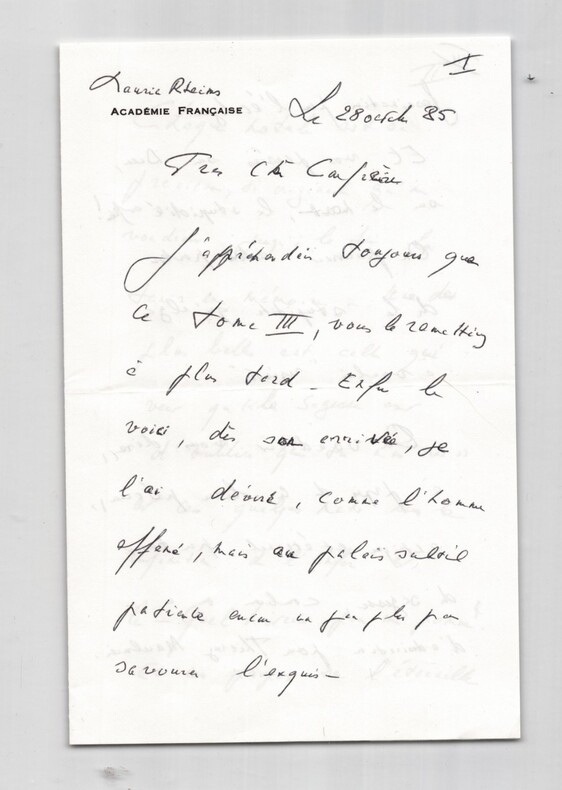 I
Maurice Rheims
ACADÉMIE FRANÇAISE
Le 28 octob 85
Tres Cher Confrère
J'appréhendais toujours que
ce tome III, vous le remettiez
à plus tard - Enfin le
voici, dès son arrivée, je
l'ai dévoré, comme l'homme
affamé, mais au palais subtil
patiente encore un peu plus pour
savourer l'exquis -